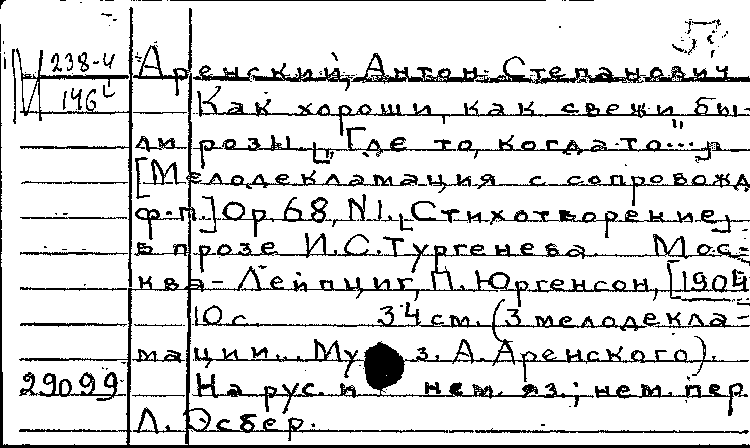 57
М 238-4 Аренский, Антон Степанович
146 Как хороши, как свежи бы-
ли розы. [„Где то, когда-то..."]
[Мелодекламация с сопровожд
ф-п.] Ор. 68, N1. [Стихотворение]
в прозе И.С.Тургенева. Мос-
ква-Лейпциг, П. Юргенсон, [1904
10 с. 34 см. (3 мелодекла-
мации... Муз. А. Аренского).
29099 На рус. и нем. яз.; нем. пер.
Л. Эсбер.